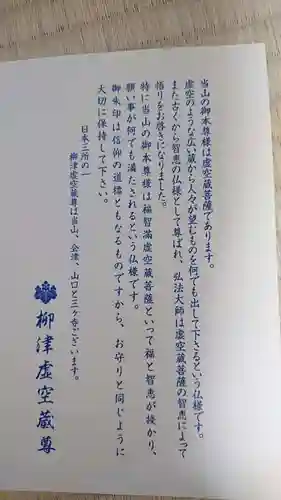 当山の御本尊様は虚空蔵菩薩であります。
虚空のような広い蔵から人々が望むものを何でも出して下さるという仏様です。
また古くから智恵の仏様として尊ばれ、弘法大師は虚空蔵菩薩の智恵によって
悟りをお啓きになりました。
特に当山の御本尊様は福智満虚空蔵菩薩といって福と智恵が授かり、
願い事が何でも満たされるという仏様です。
御朱印は信仰の道標ともなるものですから、お守りと同じように
大切に保持して下さい。
日本三所の一
柳津虚空蔵尊は当山、会津、山口と三ヶ寺ございます。
柳津虚空蔵尊